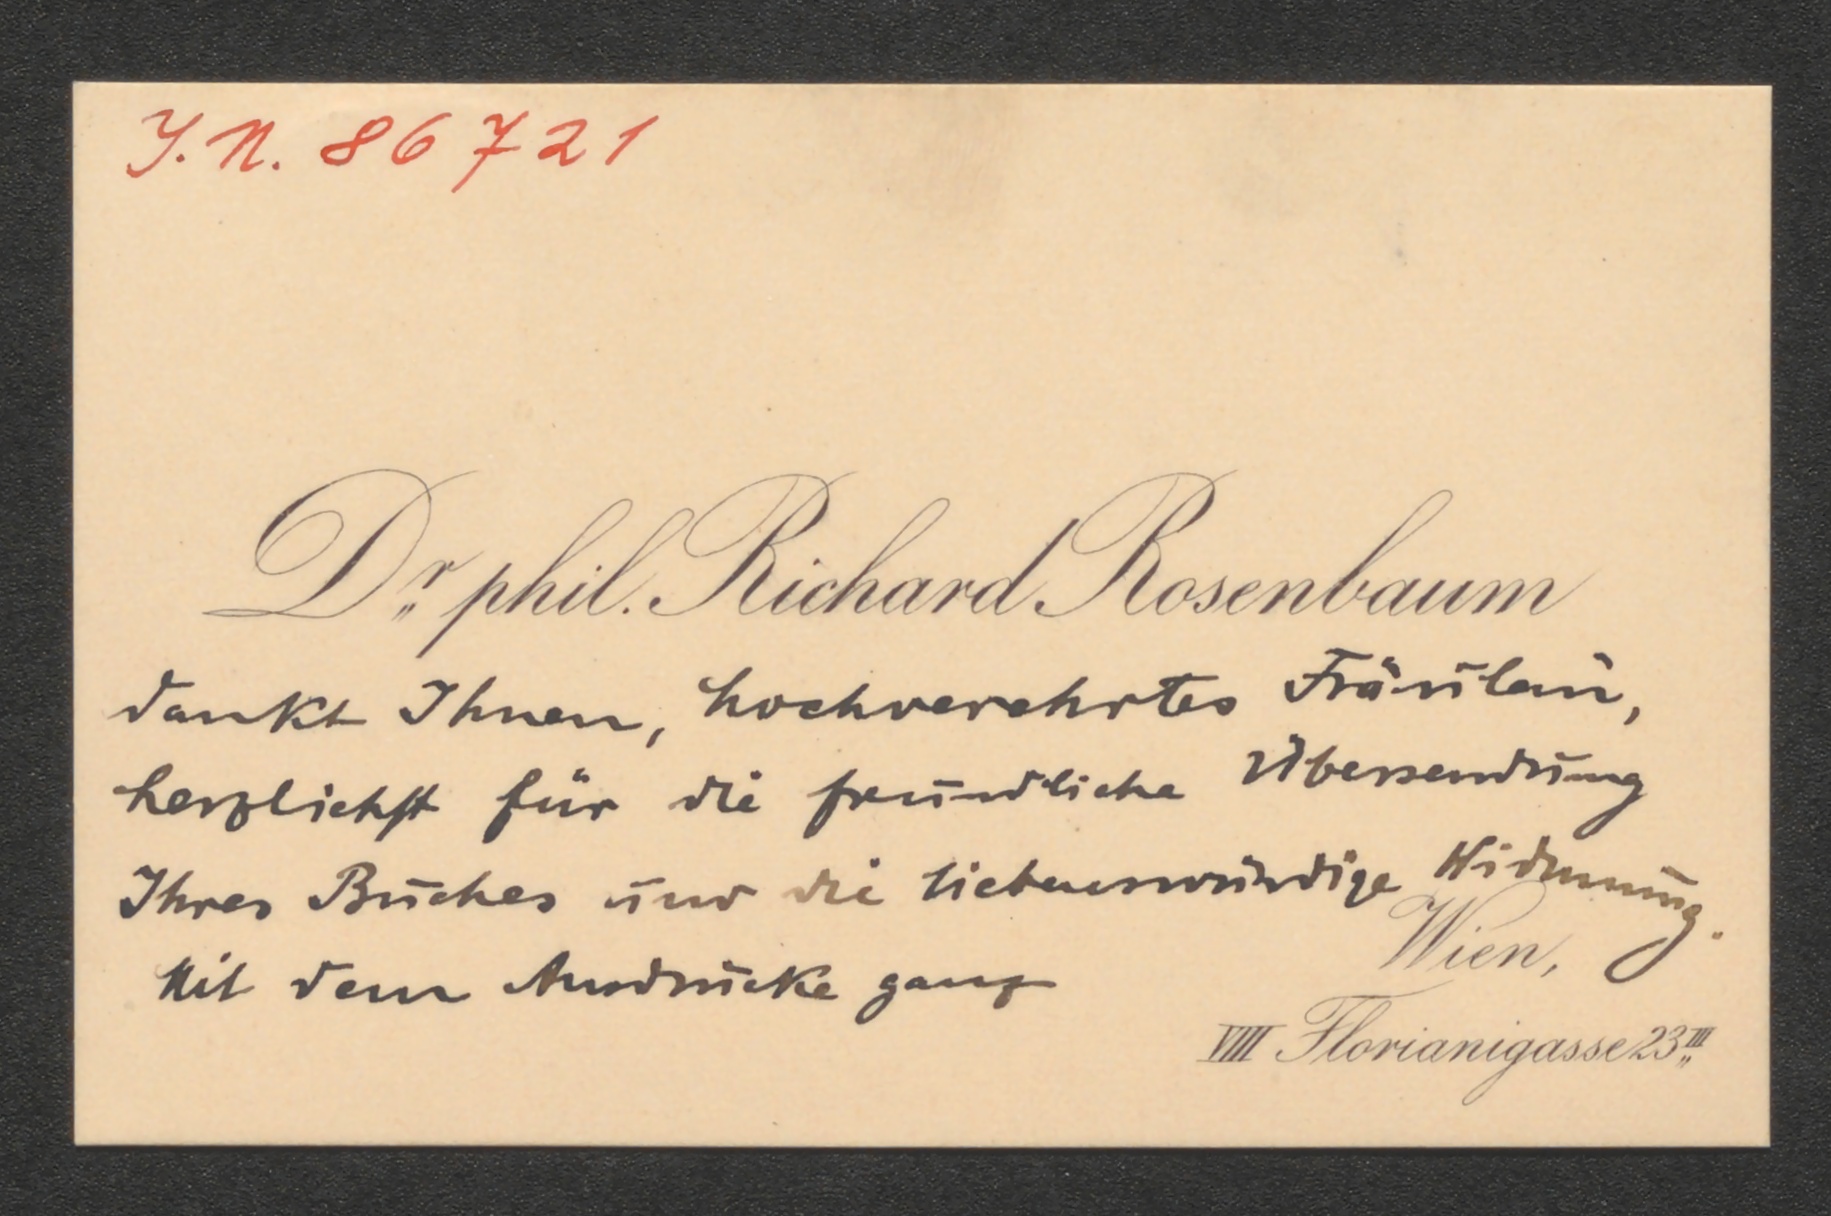 J.N. 86721
Dr. phil. Richard Rosenbaum
dankt Ihnen, hochverehrtes Fräulein,
herzlichst für die freundliche Übersendung
Ihres Buches und die liebenswürdige Widmung.
Mit dem Ausdrucke ganz
Wien,
VIII Florianigasse 23 III